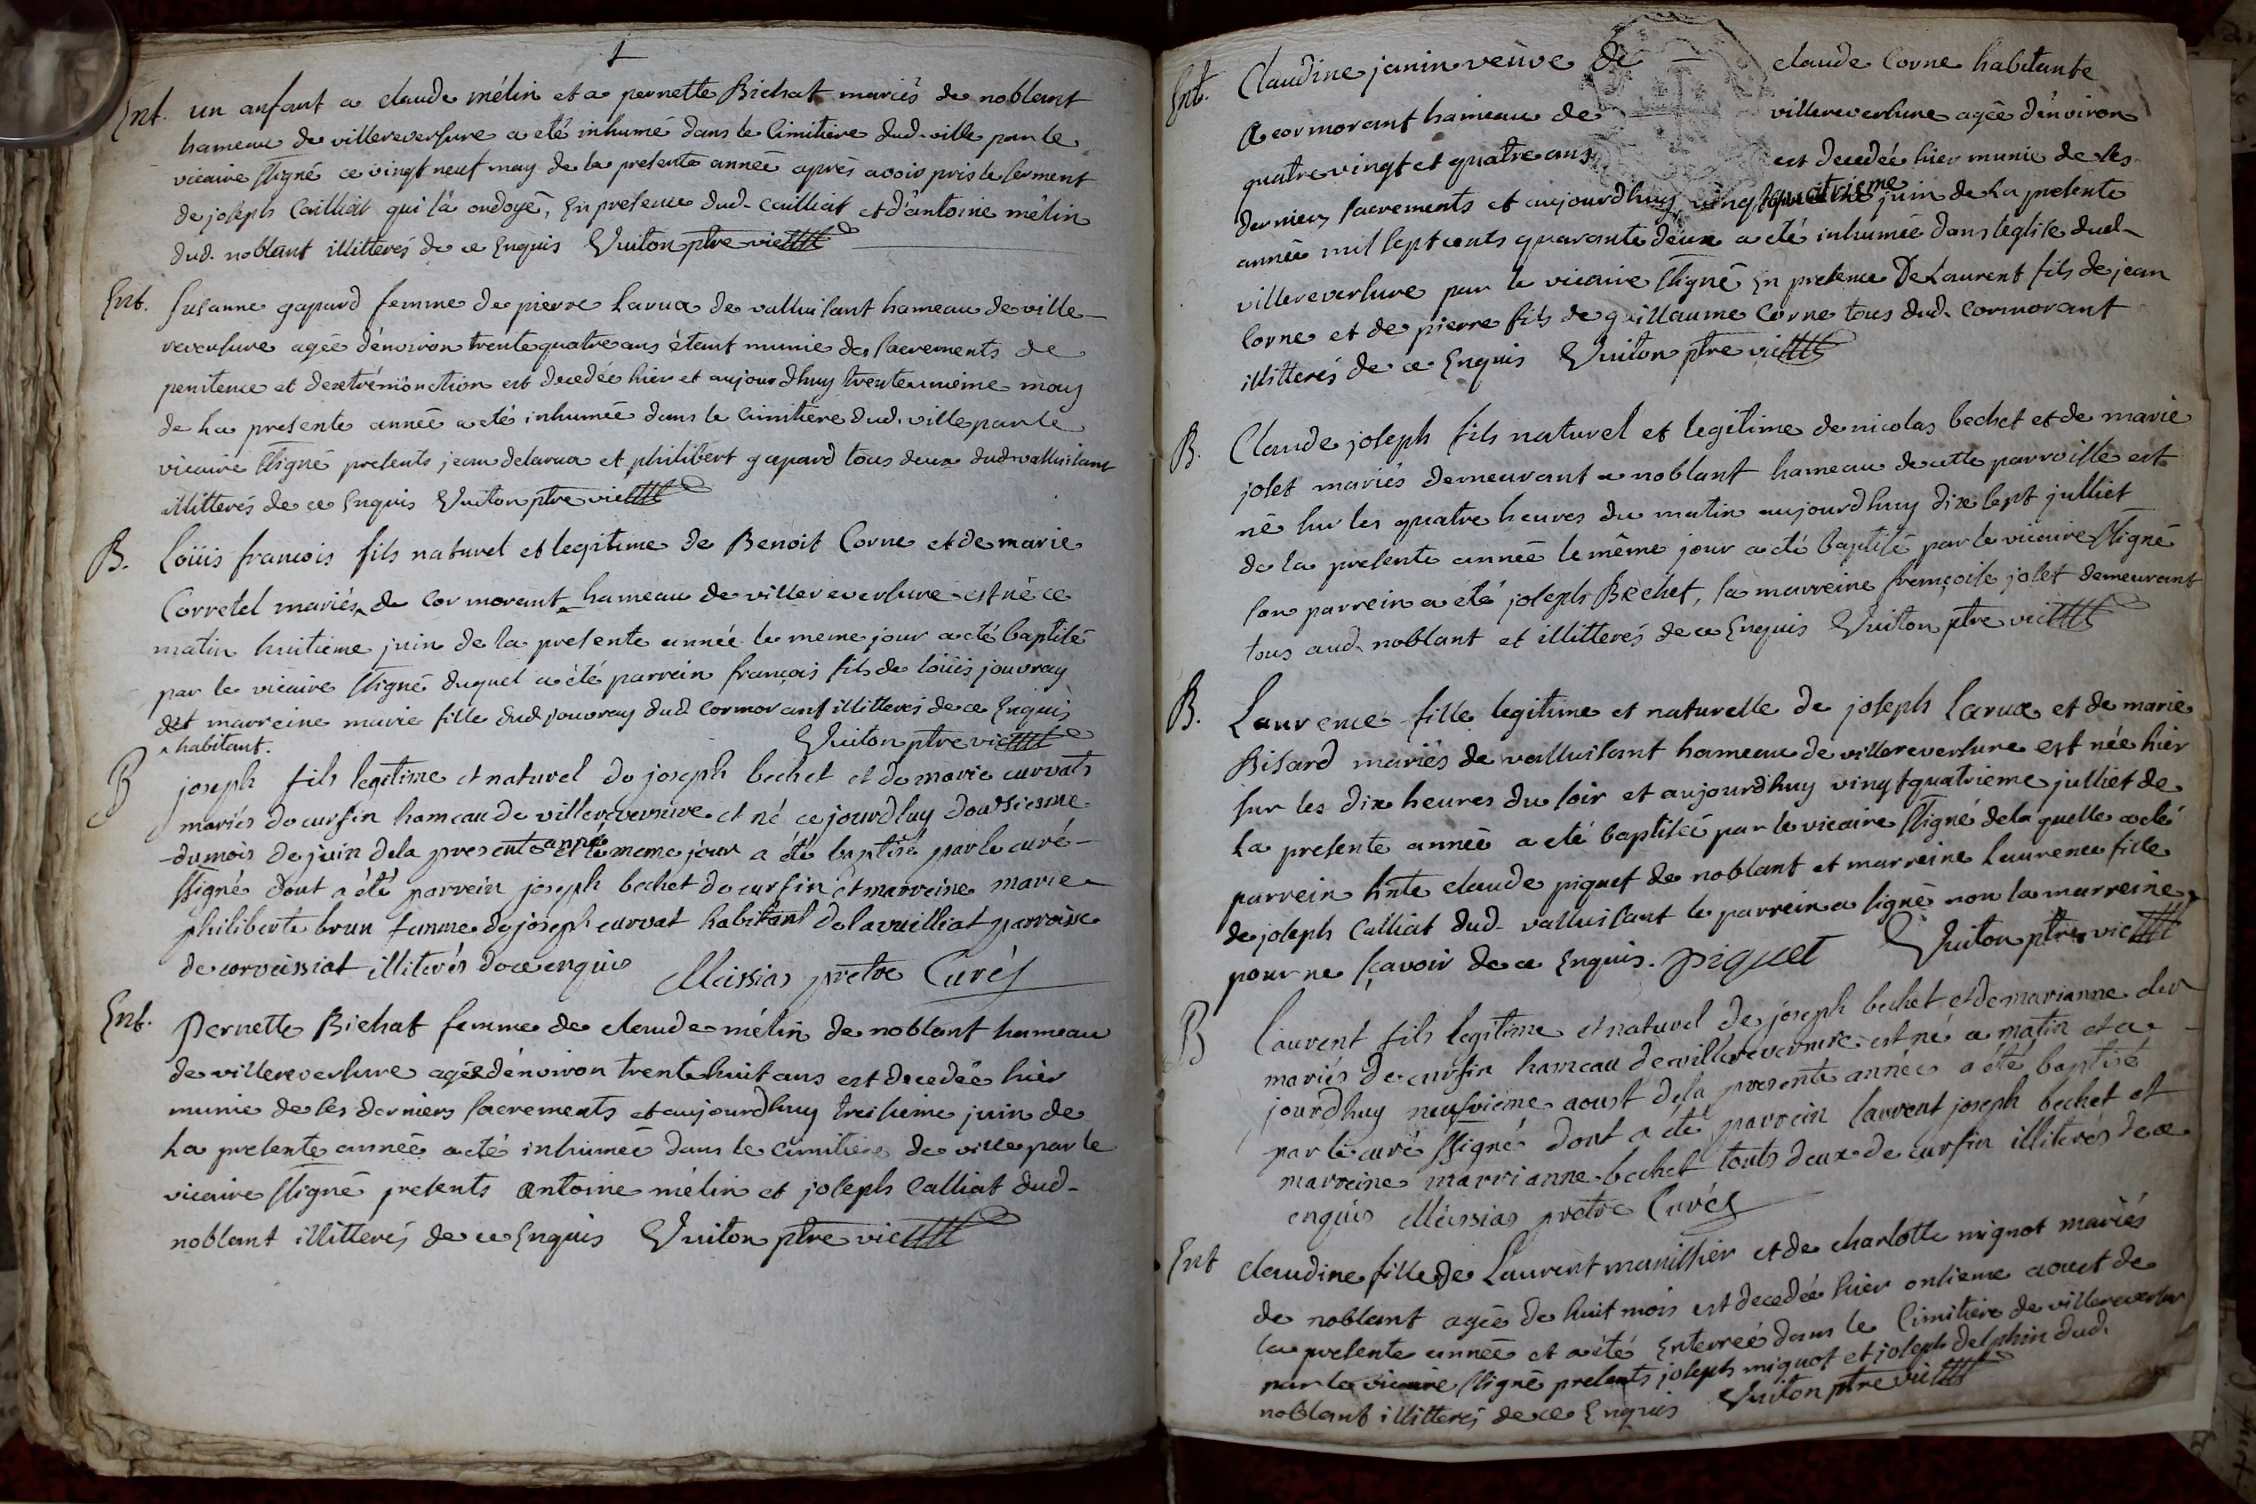 Ent. un anfant a claude mélin et a pernette Bichat mariés de noblant
hameau de villereversure a eté inhumé dans le Cimitiere dud. ville par le
vicaire ssigné ce vingt neuf may de la presente année aprés avoir pris le serment
de joseph Cailliat qui l'a ondoyé, En presence dud. Cailliat et d'antoine mélin
dud. noblant illitterés de ce Enquis Vuiton ptre vic
Ent. susanne gapard femme de pierre Larua de valluisant hameau de ville
reversure agée d'énviron trente quatre ans étant munie des sacrements de
penitence et dextrémonction est decedée hier et aujourdhuy trente unieme may
de La presente année a eté inhumée dans le Cimitiere dud. ville par le
vicaire ssigné presents jean delarua et philibert gapard tous deux dud valluisant
illitterés de ce Enquis Vuiton ptre vic
B. Loüis francois fils naturel et legitime de Benoit Corne et de marie
Corretel mariés de Cormorant hameau de villereversure est né ce
matin huitieme juin de la presente année le meme jour a eté baptisé
par le vicaire ssigné duquel a été parrein françois fils de loüis jouvray
et marreine marie fille dud. jouvray dud Cormorant illitterés de ce Enquis
habitant. Vuiton ptre vic
B joseph fils legitime et naturel de joseph bechet et de marie curvat
mariés de cursin hameau de villereversure et né ce jourdhuy dousiesme
du mois de juin dela presente année et le meme jour a été baptisé par le curé
ssigné dont a été parrein joseph bechet de cursin et marreine marie
philiberte brun femme de joseph curvat habitant de lavuilliat parroisse
de corveissiat illiterés de ce enquis Meissias pretre Curé
Ent. Pernette Bichat femme de claude mélin de noblant hameau
de villereversure agée d'énviron trente huit ans est decedée hier
munie de ses derniers sacrements et aujourdhuy treisieme juin de
La presente année a eté inhumée dans le Cimitiere de ville par le
vicaire ssigné presents antoine mélin et joseph Calliat dud.
noblant illitterés de ce Enquis Vuiton ptre vic
Ent. Claudine janin veüve de claude Corne habitante
a cormorant hameau de villereversure agée d'énviron
quatre vingt et quatre ans est decedée hier munie de ses
derniers sacrements et aujourdhuy vingt quatrieme juin de La presente
année mil sept cents quarante deux a eté inhumée dans leglise dud.
villereversure par le vicaire ssigné En presence De Laurent fils de jean
Corne et de pierre fils de guillaume Corne tous dud. Cormorant
illitterés de ce Enquis Vuiton ptre vic
B. Claude joseph fils naturel et legitime de nicolas bechet et de marie
jolet mariés demeurant a noblant hameau de cette parroisse est
né sur les quatre heures du matin aujourdhuy dix sept julliet
de la presente année le même jour a eté baptisé par le vicaire ssigné
son parrein a eté joseph Bechet, sa marreine françoise jolet demeurant
tous aud. noblant et illitterés de ce Enquis Vuiton ptre vic
B. Laurence fille legitime et naturelle de joseph Larua et de marie
Bisard mariés de valluisant hameau de villereversure est née hier
sur les dix heures du soir et aujourdhuy vingt quatrieme julliet de
La presente année a eté baptisée par le vicaire ssigné dela quelle a eté
parrein hnte claude piquet de noblant et marreine Laurence fille
de joseph Calliat dud. valluisant le parrein a signé non la marreine
pour ne sçavoir de ce Enquis. piquet Vuiton ptre vic
B Laurent fils legitime et naturel de joseph bechet et de marianne
mariés de cursin hameau de villereversure est né ce matin et ce
jourdhuy neufvieme aoust dela presente année a été baptisé
par le curé ssigné dont a été parrein laurent joseph bechet et
marreine marrianne bechet touts deux de cursin illiterés de ce
enquis Meissias pretre Curé
Ent claudine fille de Laurent manissier et de charlotte mignot mariés
de noblant agée de huit mois est decedée hier onsieme aoust de
la presente année et a été Enterrée dans le Cimitiere de villereversure
par le vicaire ssigné presents joseph mignot et joseph delphin dud.
noblant illitterés de ce Enquis Vuiton ptre vic